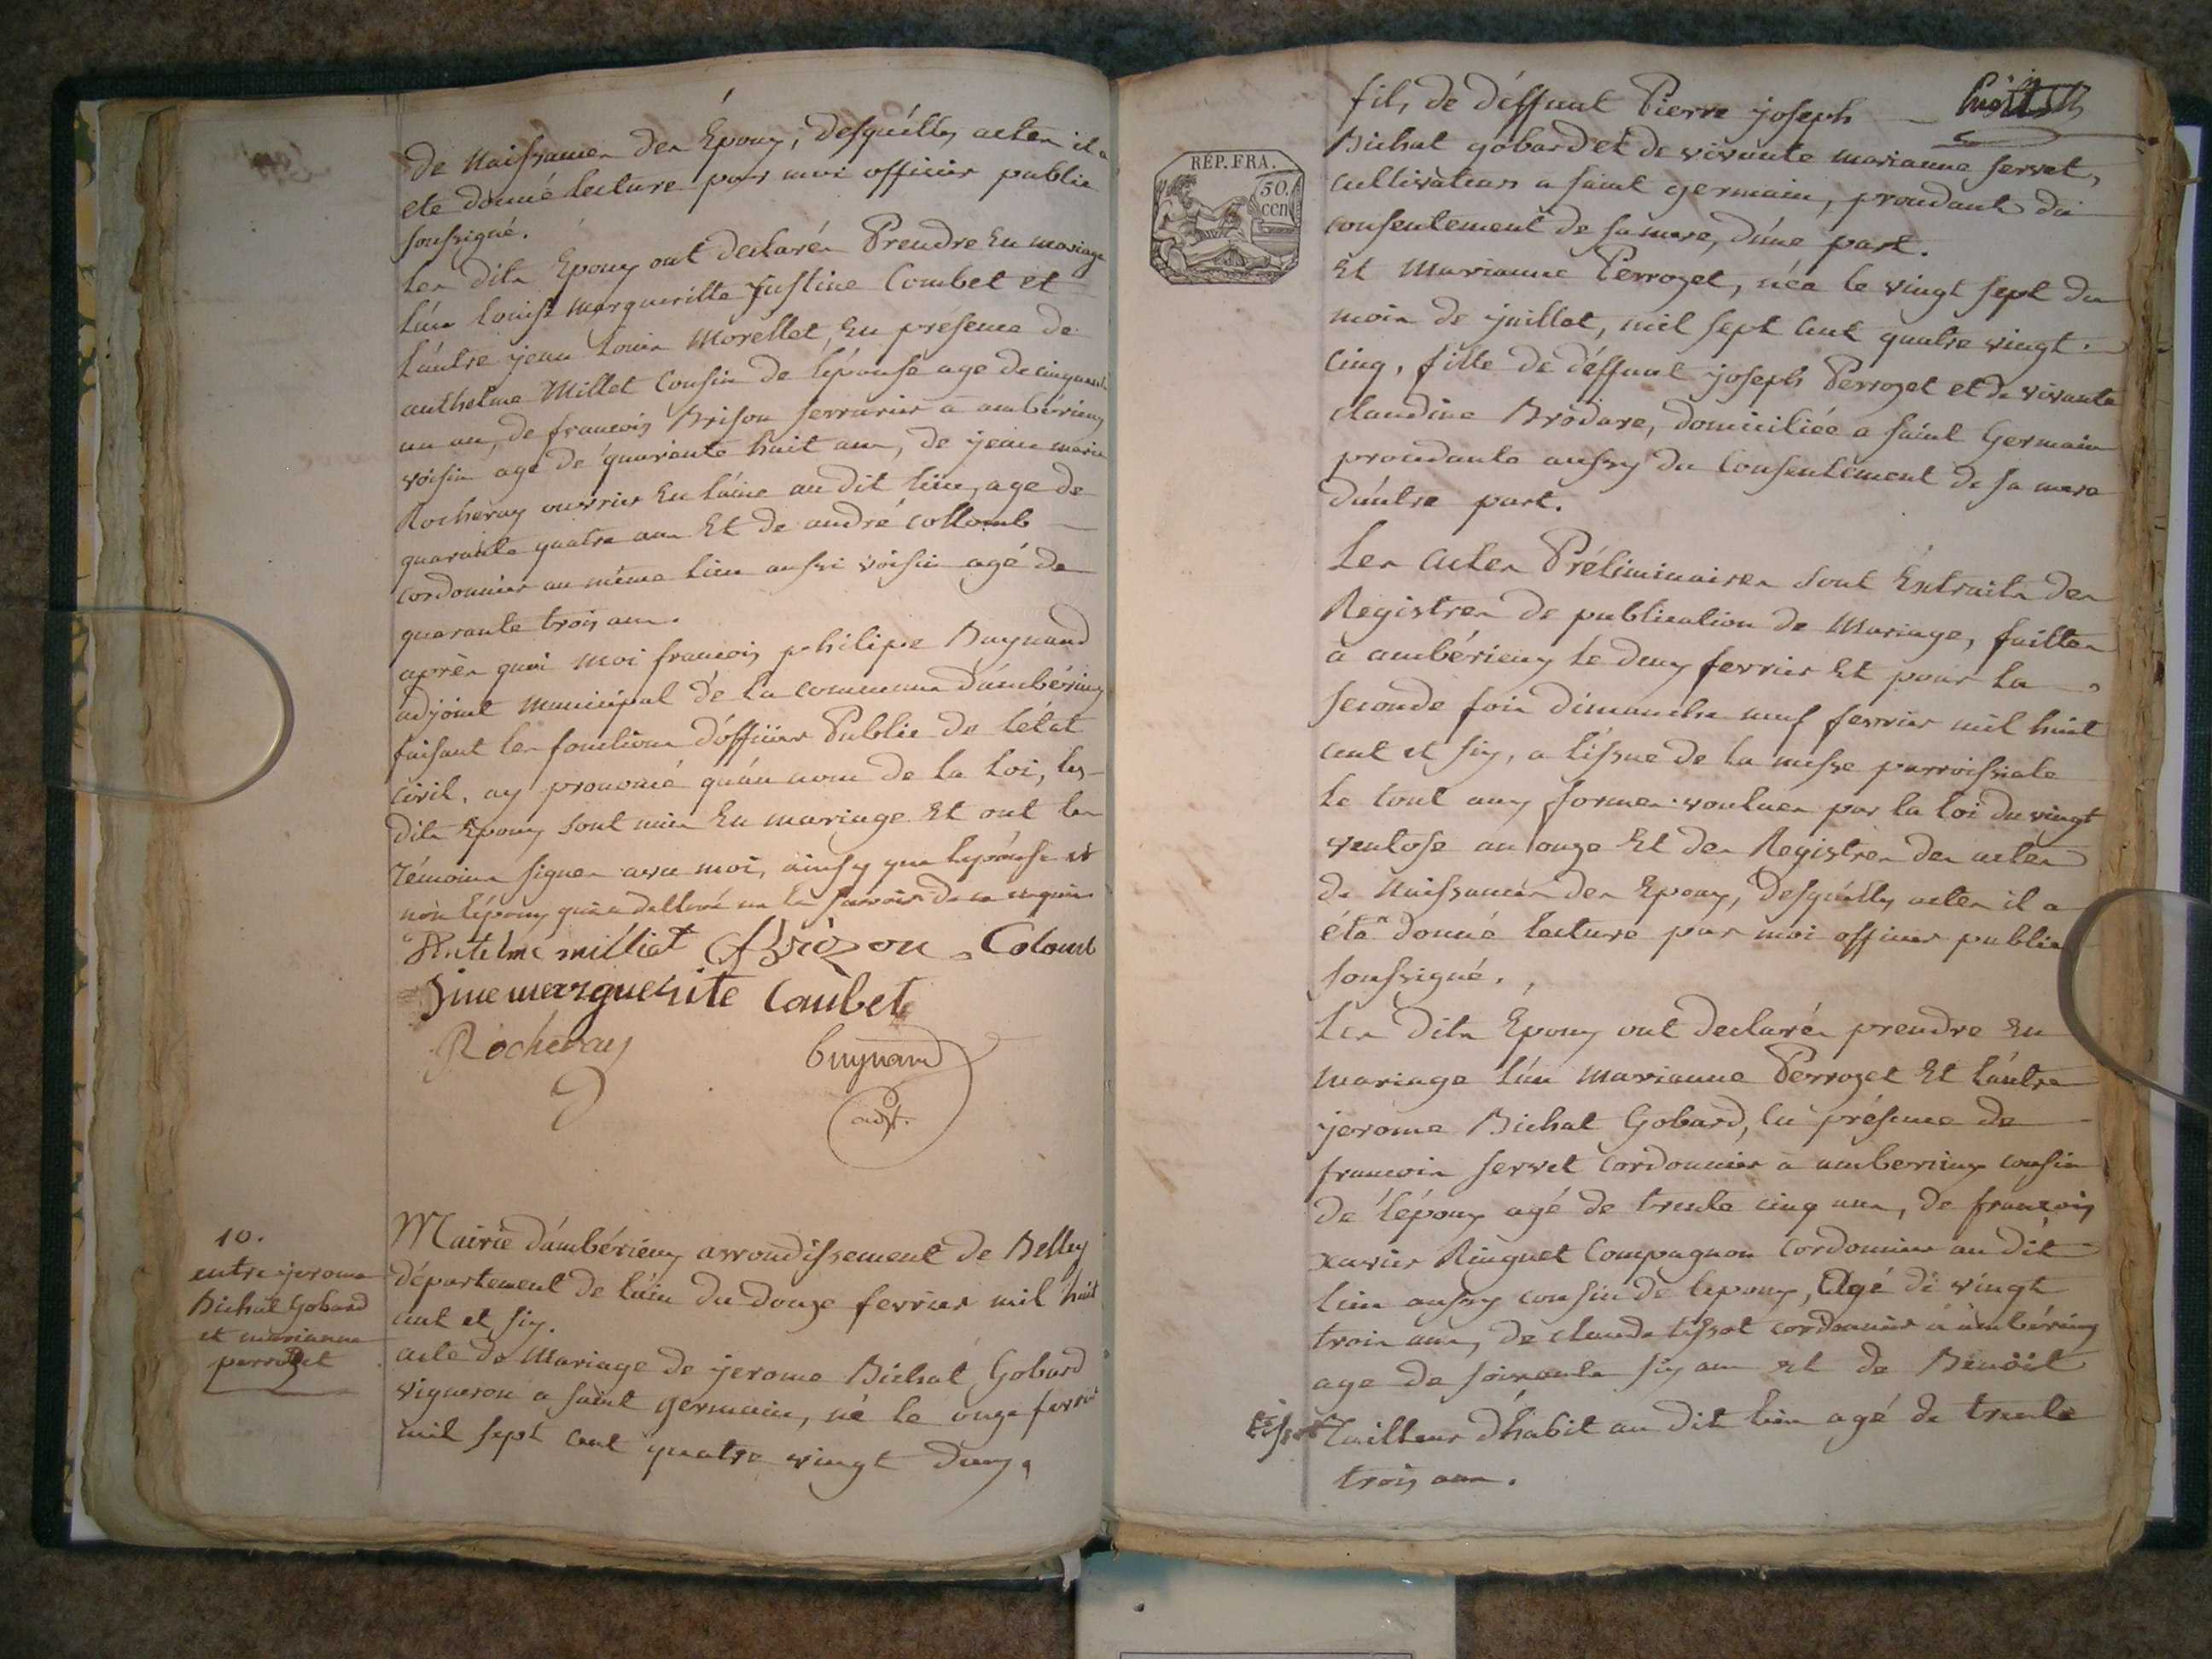 de Naissances des Epoux, desquélles actes il a
eté donné lecture par moi officier public
soussigné.
Les dits Epoux ont declarés Prendre En mariage
L'un Louise Margueritte Justine Combet et
L'autre jean Louis Morellet, En presence de
anthelme Millet Cousin de l'épouse age de cinquante
un an, de francois Brison serrurier a ambérieux
voisin age de quarente huit ans, de jean marie
Rocheray ouvrier En laine au dit lieu, age de
quarante quatre ans Et de andré collomb
cordonnier au même lieu aussi voisin agé de
quarante trois ans.
après quoi moi francois philipe Buynand
adjoint municipal de la commune d'ambérieux
faisant les fonctions d'officier Public de l'état
civil, ay prononcé qu'au nom de la Loi, les
dits Epoux sont unis En mariage Et ont les
témoins signes avec moi, ainsy que l'epouse et
non l'époux
Antelme milliat fBrizon Colomb
marguerite Combet
Rocheray buynand
adjt.
10.
entre jerome
Bichat Gobard
et marianne
perrozet
Mairie d'ambérieux arrondissement de Belley
département de l'ain du douze fevrier mil huit
cent et six.
acte de Mariage de jerome Bichat Gobard
vigneron a saint germain, né le onze fevrier
mil sept cent quatre vingt deux,
fils de déffunt Pierre joseph
Bichat gobard et de vivante marianne servet,
cultivateurs a saint germain, procedant du
consentement de sa mere, d'une part.
RÉP. FRA.
50.
cen
Et Marianne Perrozet, née le vingt sept du
mois de juillet, mil sept cent quatre vingt
cinq, fille de déffunt joseph Perrozet et de vivante
claudine Brodare, domiciliée a saint Germain
procedante aussy du Consentement de sa mere
d'autre part.
Les Actes Préliminaires sont Extraits des
Registres de publication de Mariage, faittes
à ambérieux le deux fevrier Et pour la
seconde fois dimanche neuf fevrier mil huit
cent et six, a l'issue de la messe parroissiale
le tout aux formes voulues par la loi du vingt
ventose an onze Et des Registres des actes
de Naissances des Epoux, desquélles actes il a
été donné lecture par moi officier public
soussigné.
Les dits Epoux ont declarés prendre En
mariage l'un Marianne Perrozet Et l'autre
jerome Bichat Gobard, En présence de
francois servet cordonnier a amberieux cousin
de l'époux agé de trente cinq ans, de françois
xavier Ringuet Compagnon Cordonnier au dit
lieu aussy cousin de l'epoux, Agé de vingt
trois ans, de claude tissot cordonnier a ambérieux
age de soixante six ans et de Benoit
tissot Tailleur d'habit au dit lieu agé de trente
trois ans.